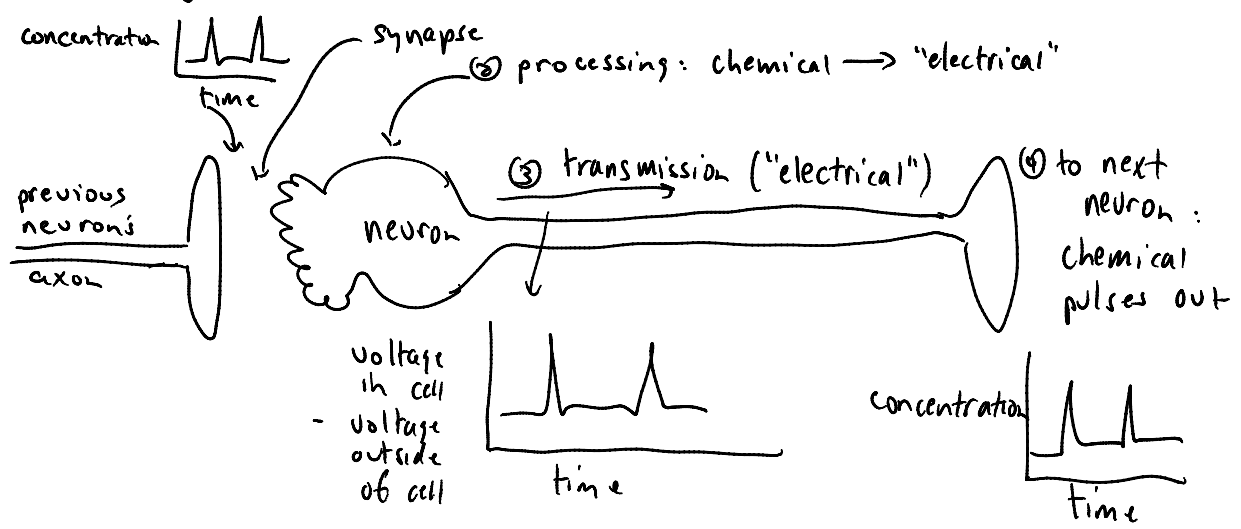 concentration
time
synapse
② processing: chemical → "electrical"
previous
neuron's
axon
neuron
③ transmission ("electrical")
④ to next
neuron:
chemical
pulses out
voltage
in cell
- voltage
outside
of cell
time
concentration
time